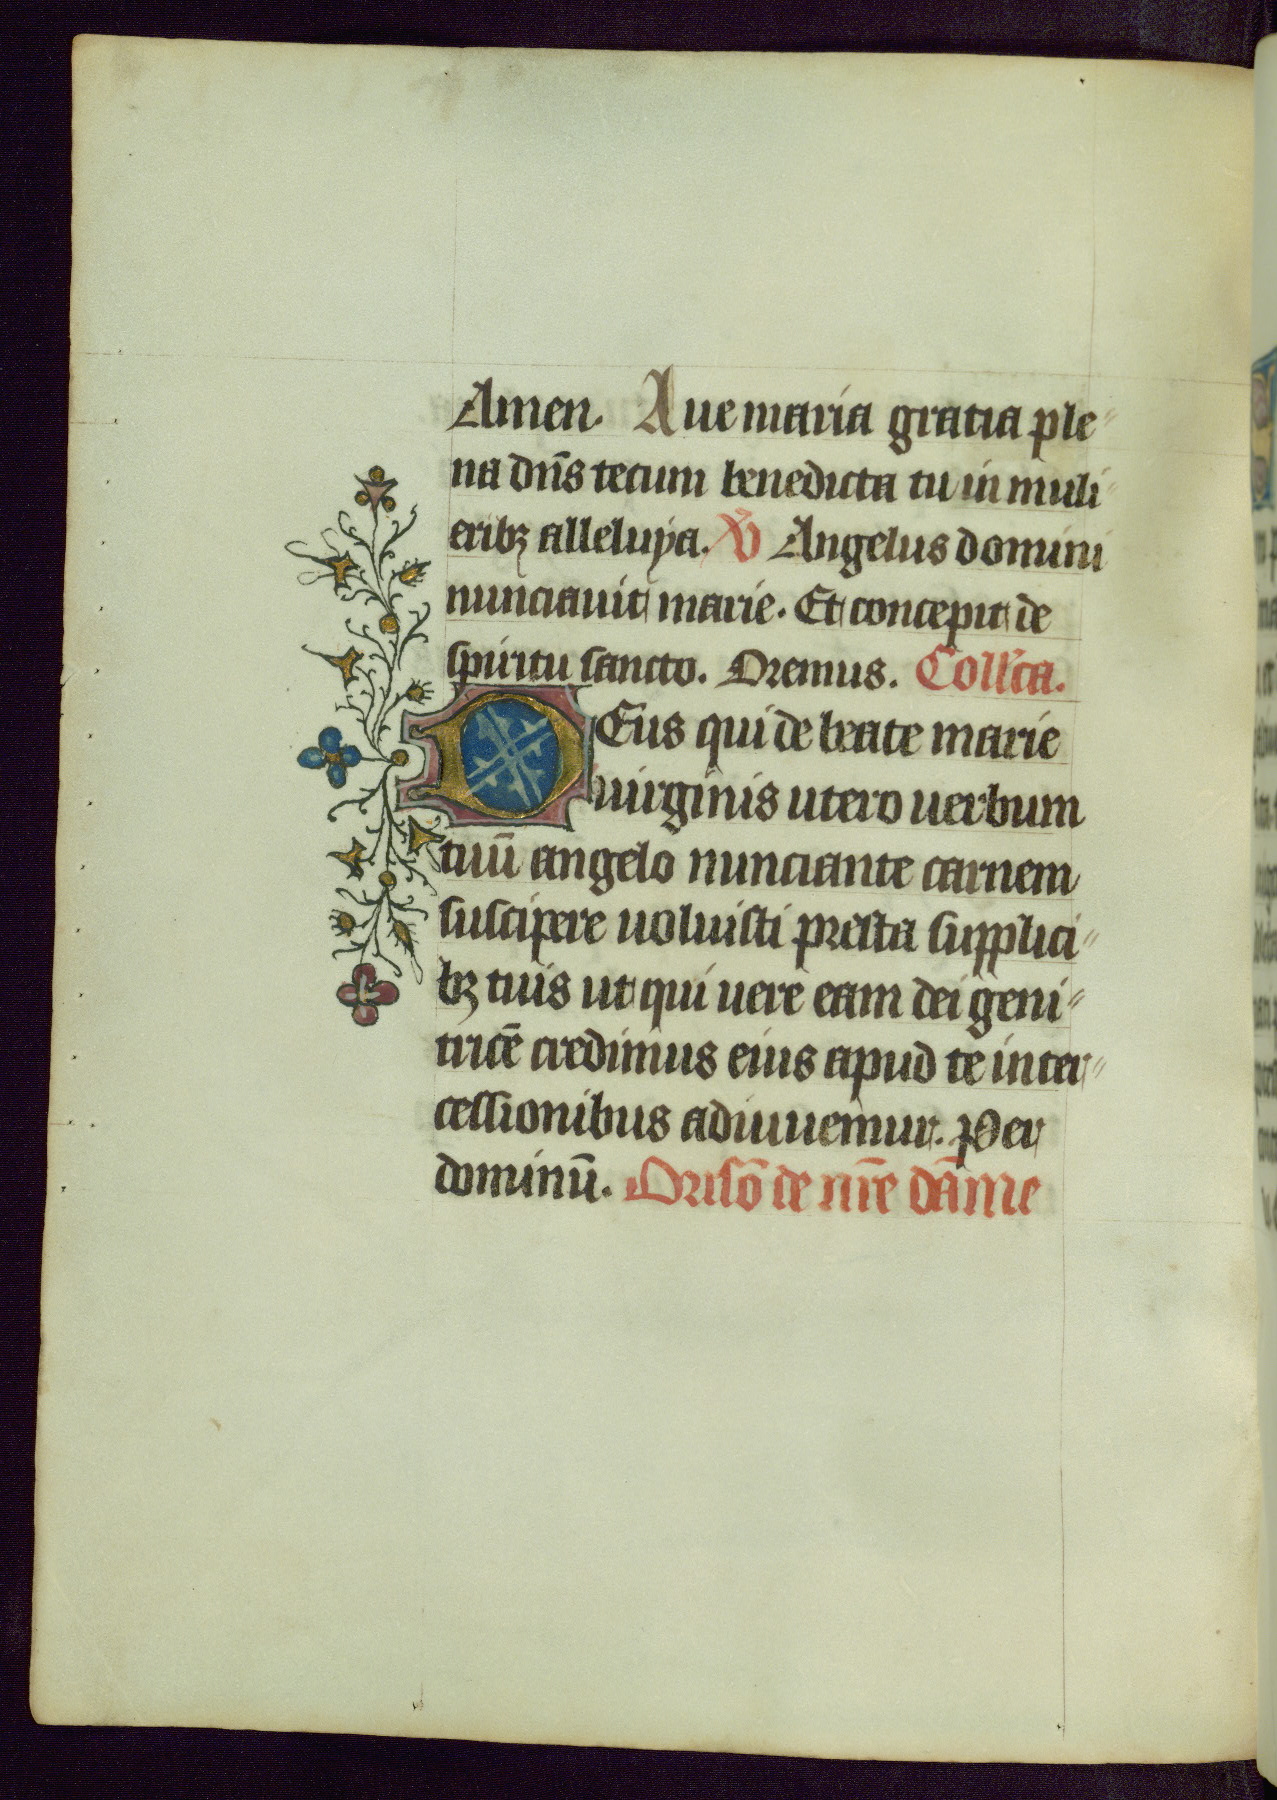 Amen. Aue maria gratia ple
na dn̄s tecum benedicta tu in muli
eribꝫ alleluya. ℣ Angelus domini
nunciauit marie. Et concepit de
spiritu sancto. Oremus. Coll'ca.
DEus qui de beate marie
uirginis utero uerbum
tuū angelo nunciante carnem
suscipere uoluisti presta supplici
bꝫ tuis ut qui uere eam dei geni
tricē credimus eius apud te inter
cessionibus adiuuemur. Per
dominū. Orisō de nr̄e dāme